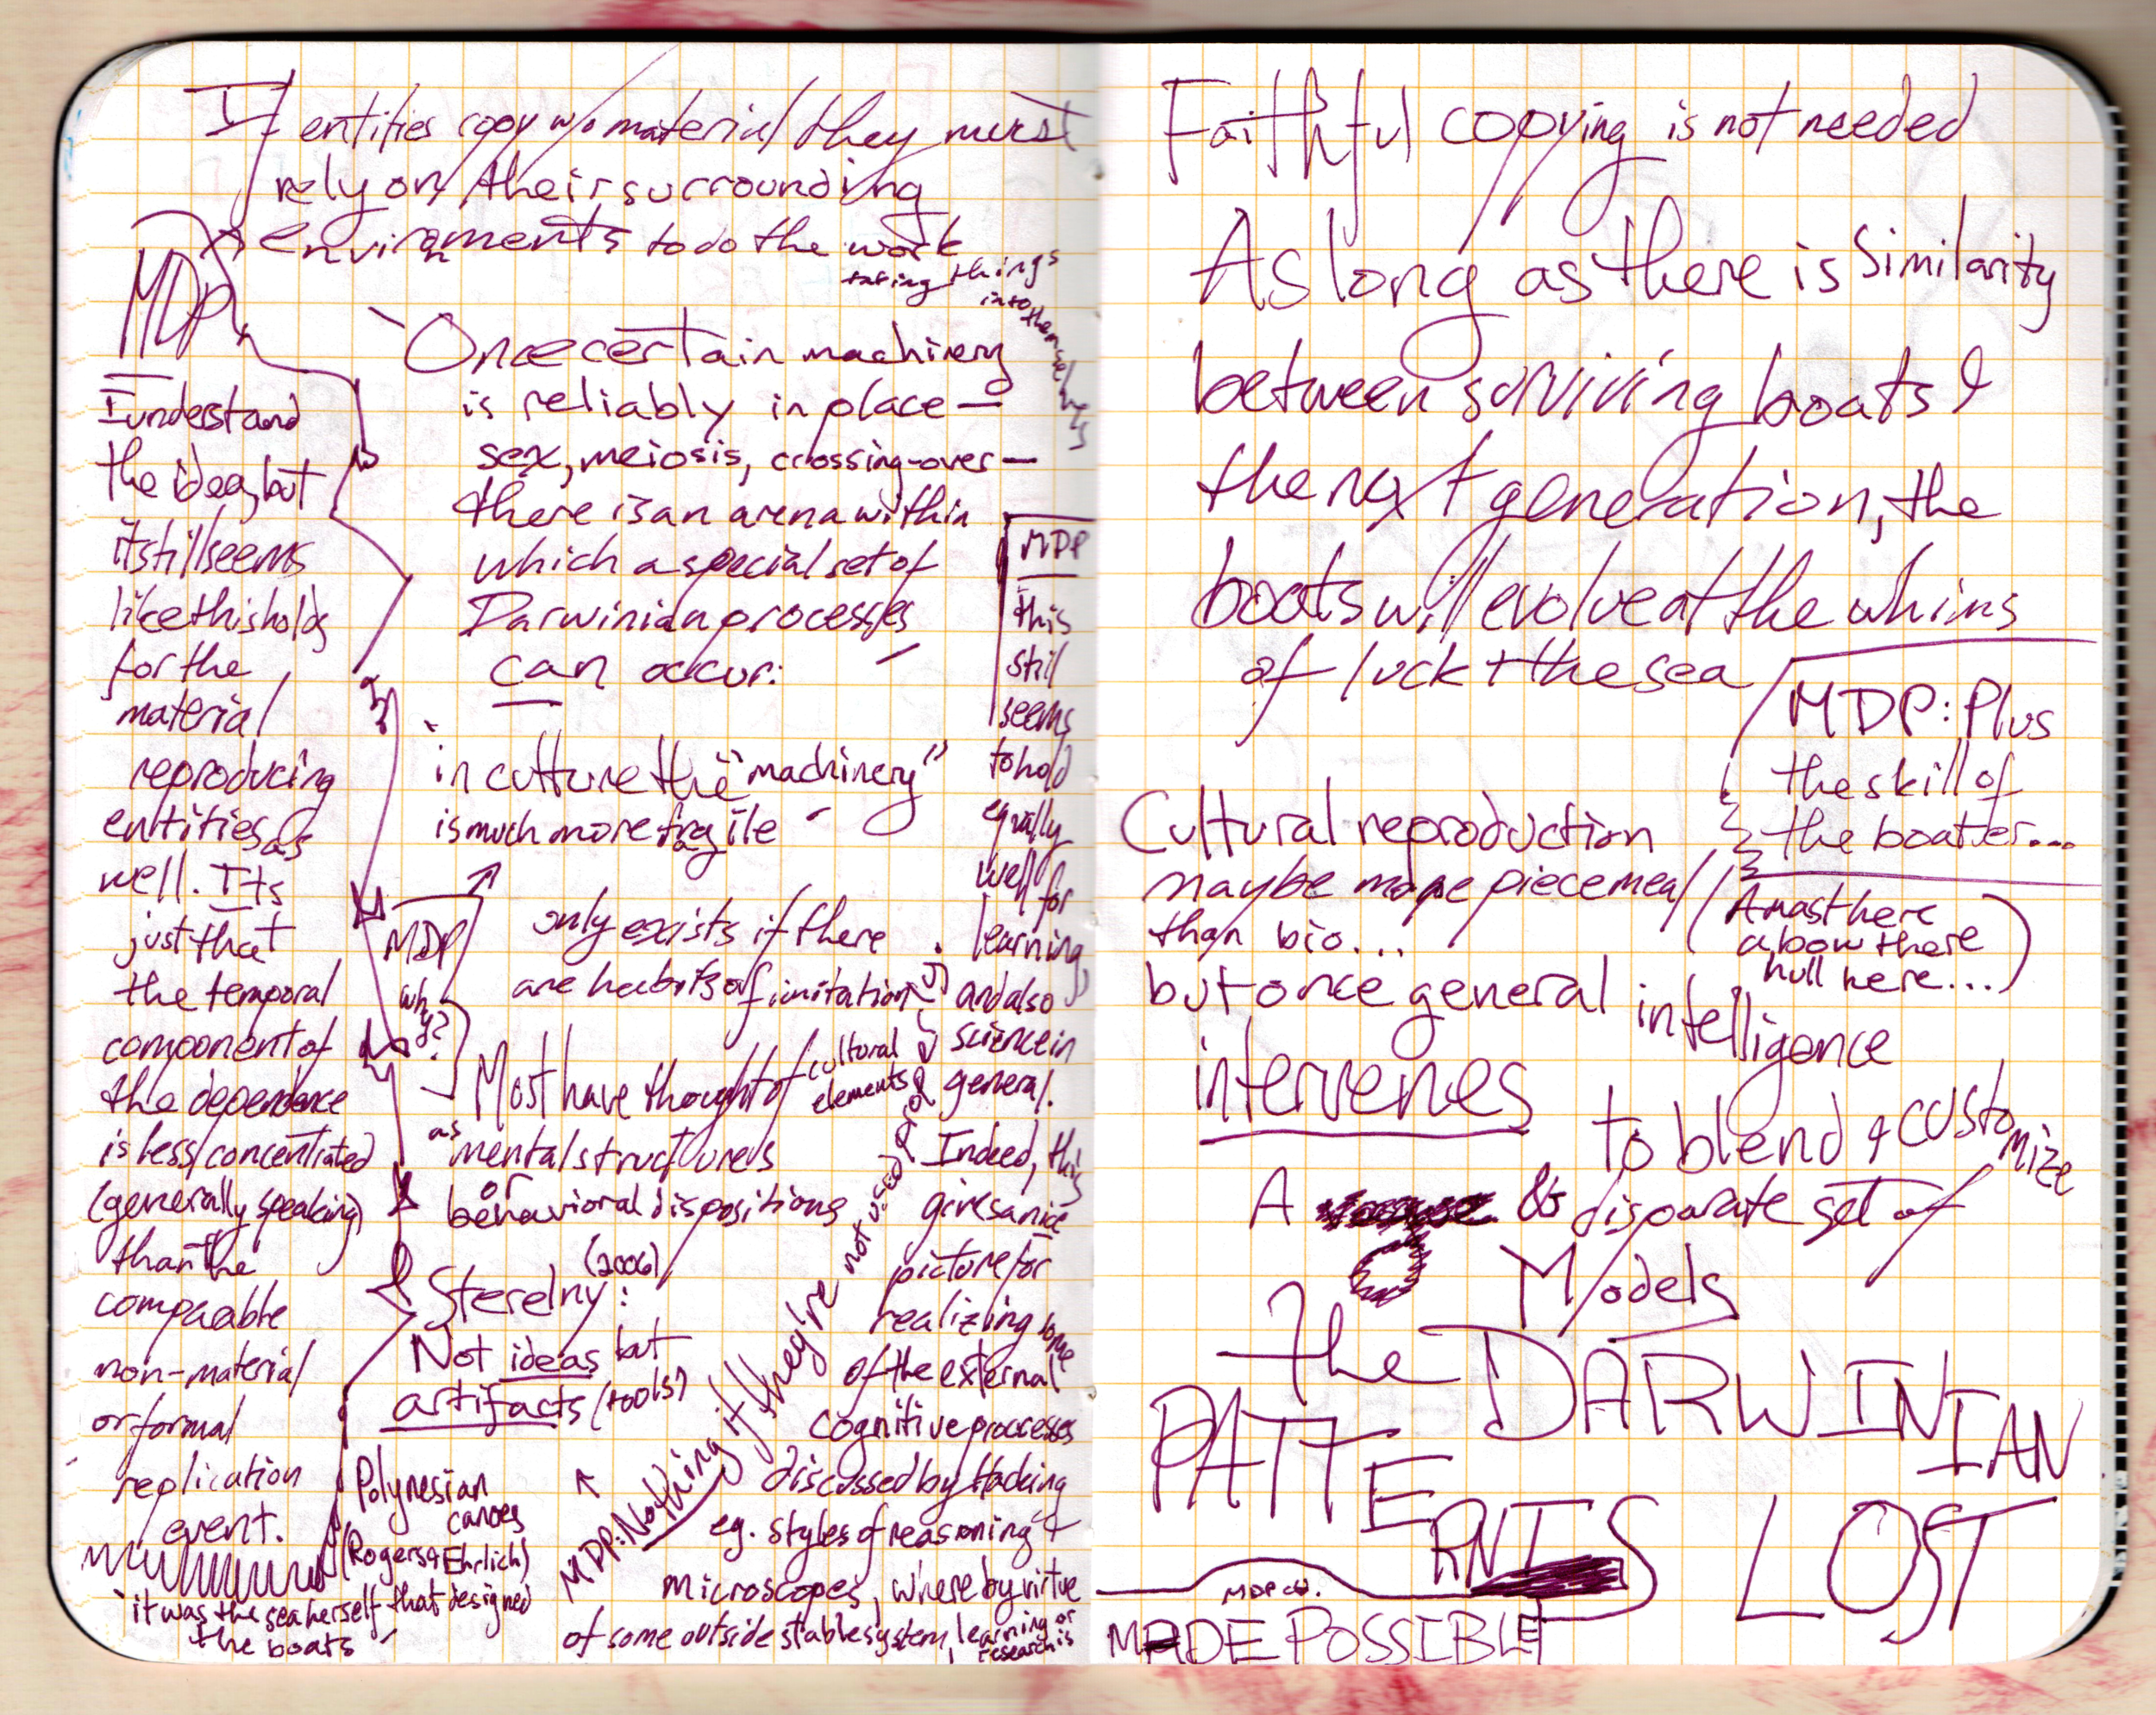 If entities copy w/o material they must
rely on their surrounding
environments to do the work
taking things
into themselves
MDP
I understand
the idea, but
it still seems
like this holds
for the
material
reproducing
entities as
well. Its
just that
the temporal
component of
the dependence
is less concentrated
(generally speaking)
than the
comparable
non-material
or formal
replication
event.
"Once certain machinery
is reliably in place —
sex, meiosis, crossing-over —
there is an arena within
which a special set of
Darwinian processes
can occur:
in culture the "machinery"
is much more fragile
MDP
why?
only exists if there
are habits of imitation
Most have thought of cultural
elements
as mental structures
or
behavioral dispositions
Sterelny (2006):
Not ideas but
artifacts (tools)
Polynesian
canoes
(Rogers & Ehrlich)
"it was the sea herself that designed
the boats"
MDP: Nothing if they're not used
MDP
this
still
seems
to hold
equally
well for
learning,
and also
science in
general.
Indeed, this
gives a nice
picture for
realizing some
of the external
cognitive processes
discussed by Hacking
eg. styles of reasoning &
microscopes, where by virtue
of some outside stable system, learning or
research is
MADE POSSIBLE
Faithful copying is not needed
As long as there is similarity
between surviving boats &
the next generation, the
boats will evolve at the whims
of luck + the sea
MDP: Plus
the skill of
the boater...
Cultural reproduction
maybe more piecemeal
than bio...
(A mast here
a bow there
hull here...)
but once general intelligence
intervenes
to blend & customize
A disparate set of
Models
the DARWINIAN
PATTERN IS LOST